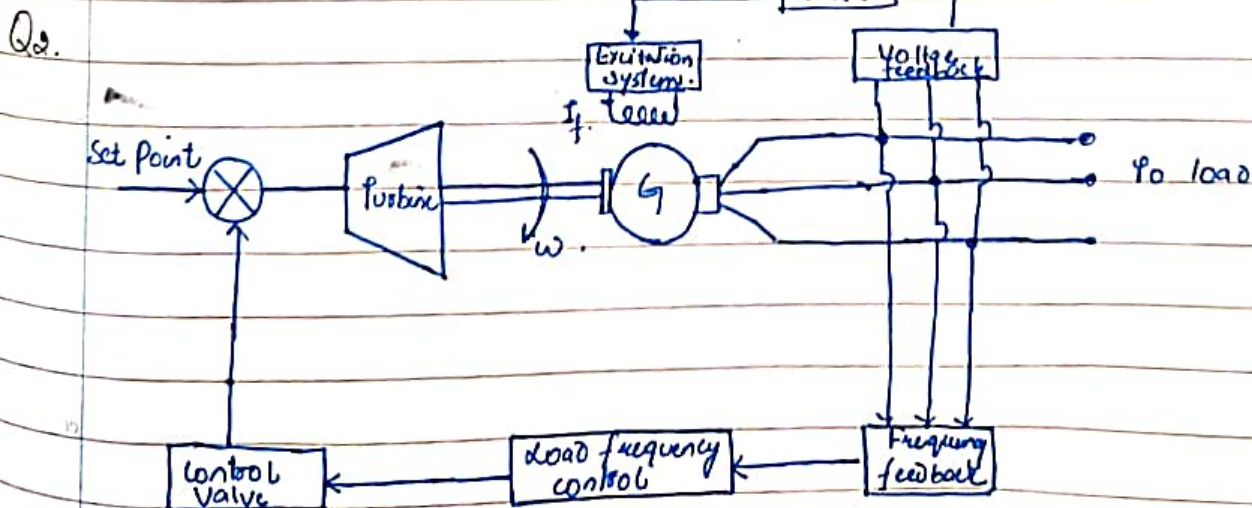 Q2.
Excitation
System.
Voltage
feedback
If.
Set Point
Turbine
G
To load
ω.
Control
Valve
Load frequency
control
Frequency
feedback